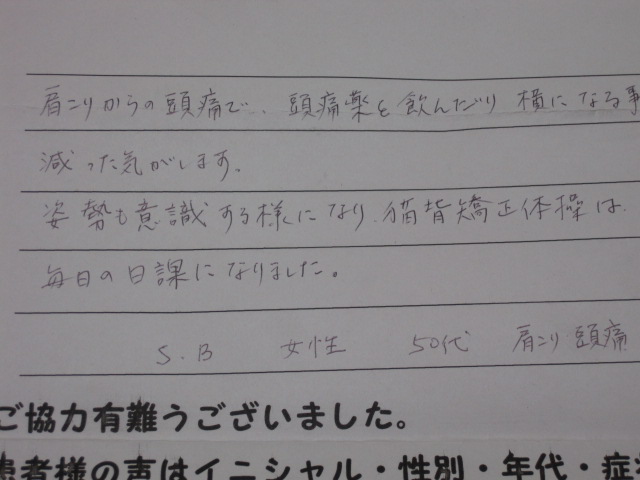 肩こりからの頭痛で、頭痛薬を飲んだり横になる事
減った気がします。
姿勢も意識する様になり、猫背矯正体操は、
毎日の日課になりました。
S.B 女性 50代 肩こり 頭痛
ご協力有難うございました。
患者様の声はイニシャル・性別・年代・症状